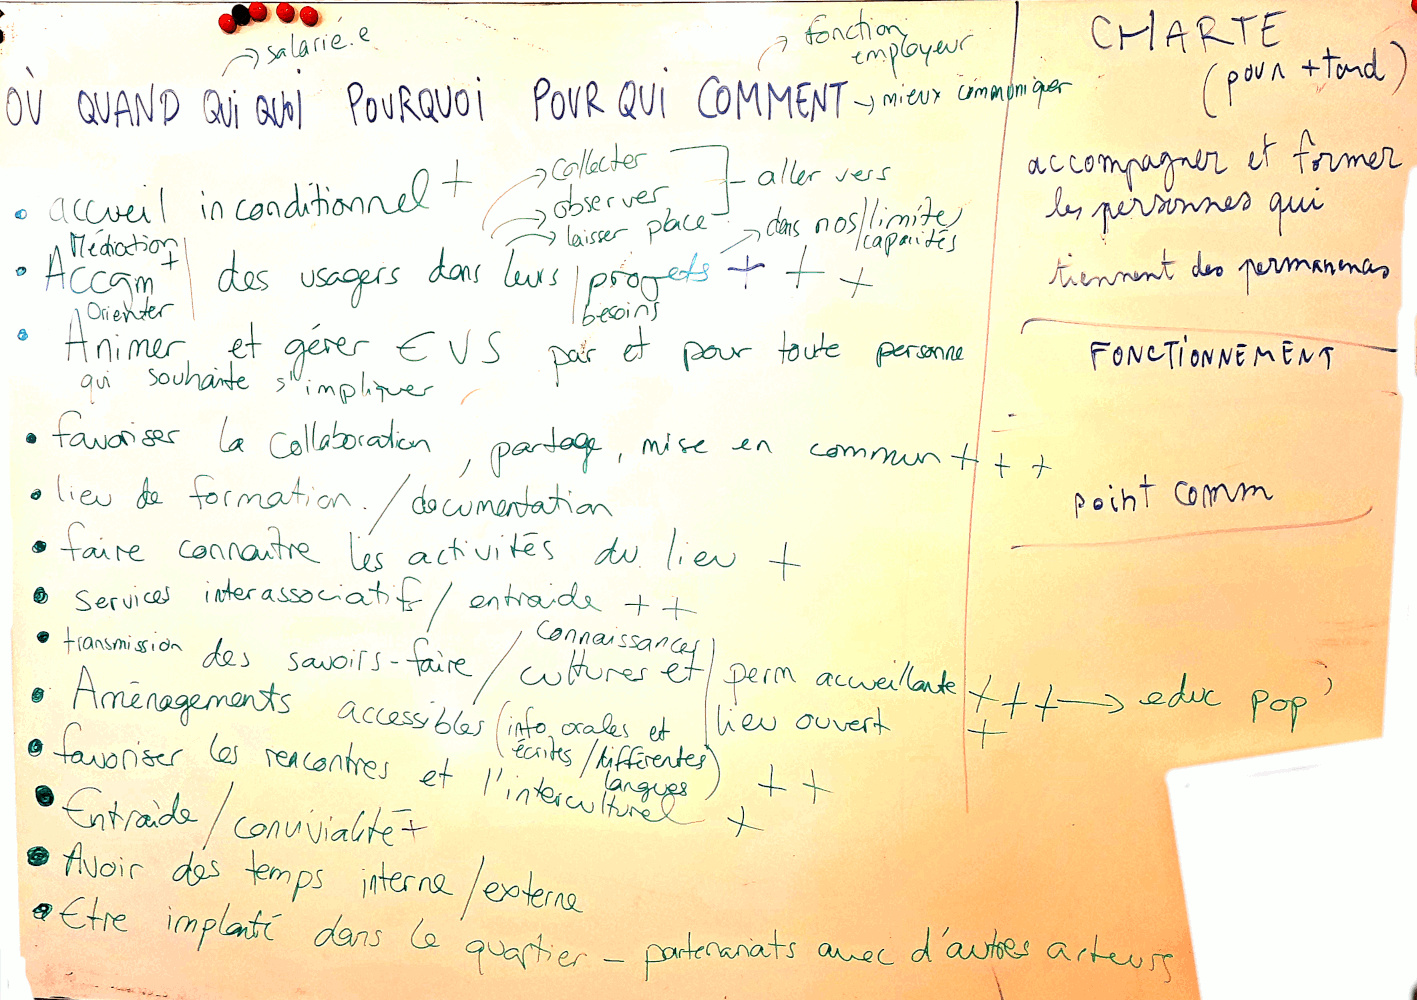 → salarié.e
→ fonction employeur
OÙ QUAND QUi QUOI POURQUOI POUR QUI COMMENT → mieux communiquer
• accueil inconditionnel +
→ collecter
→ observer
→ laisser place
aller vers
→ dans nos limites/capacités
Médiation
• Accgm + des usagers dans leurs projets + + +
Orienter
besoins
• Animer et gérer EVS par et pour toute personne
qui souhaite s'impliquer
• favoriser la collaboration, partage, mise en commun + + +
• lieu de formation. / documentation
• faire connaître les activités du lieu +
• services interassociatifs / entraide + +
• transmission des savoirs-faire / connaissances
cultures et perm accueillante + + + → educ pop'
lieu ouvert +
• Aménagements accessibles (info orales et
écrites / différentes
langues)
• favoriser les rencontres et l'interculturel + + +
• Entraide / convivialité +
• Avoir des temps interne / externe
• Etre implanté dans le quartier – partenariats avec d'autres acteurs
CHARTE
(pour + tard)
accompagner et former
les personnes qui
tiennent des permanences
FONCTIONNEMENT
point comm